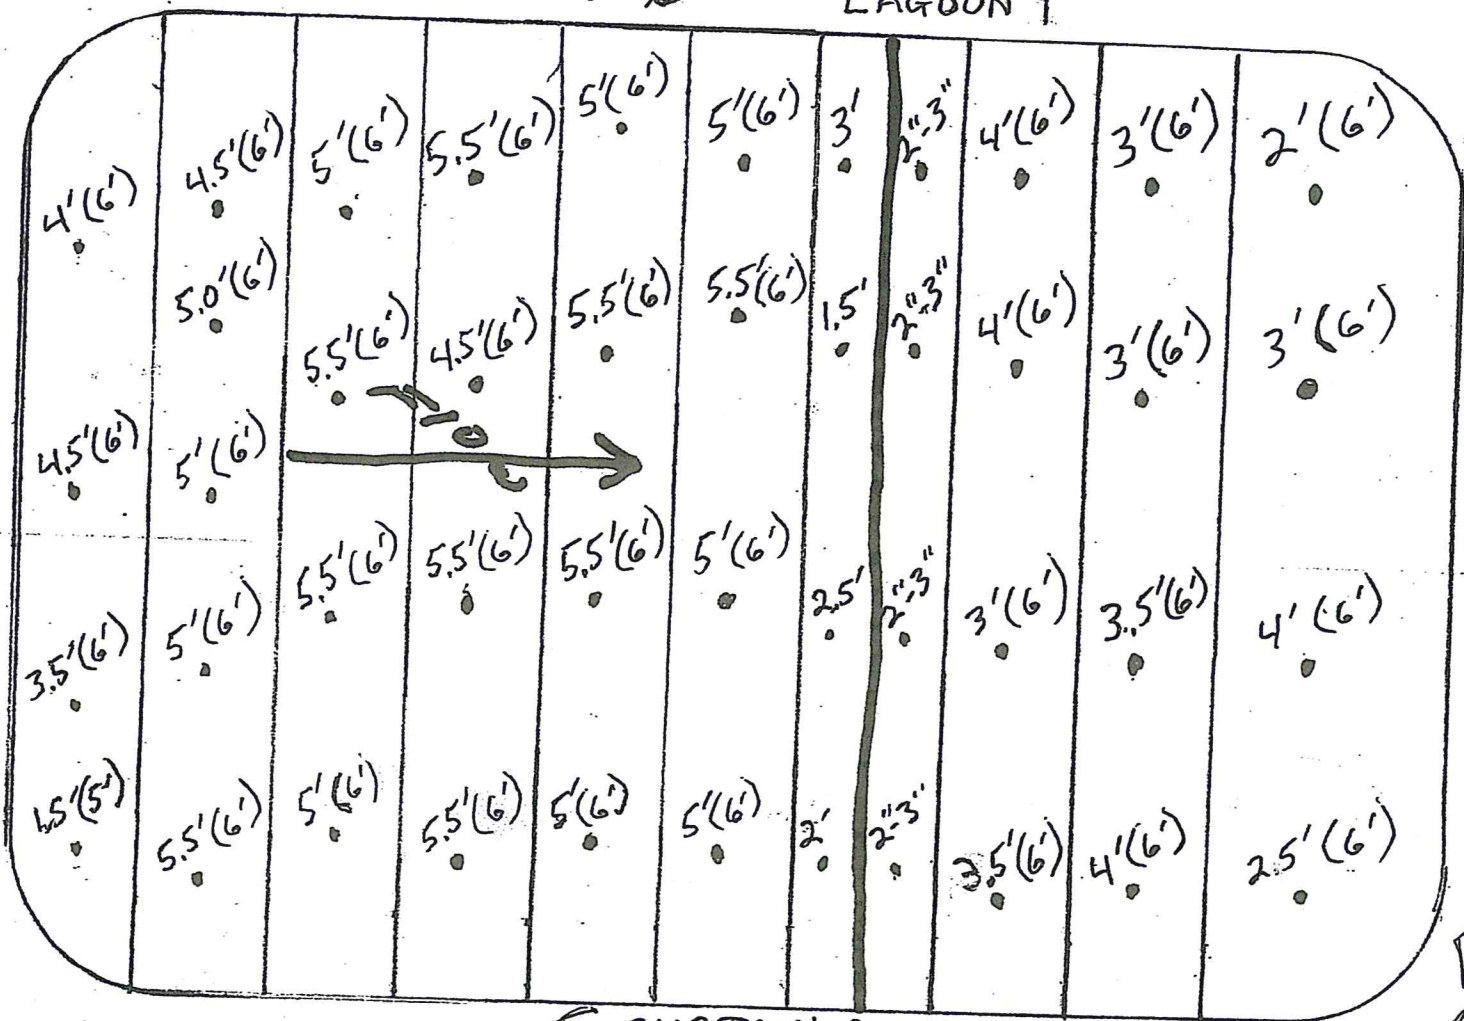 LAGOON 1
4'(6') 4.5'(6') 5'(6') 5.5'(6') 5'(6') 5'(6') 3' 2"-3" 4'(6') 3'(6') 2'(6')
5.0'(6') 5.5'(6') 4.5'(6') 5.5'(6') 5.5'(6') 1.5' 2"-3" 4'(6') 3'(6') 3'(6')
4.5'(6') 5'(6')
3.5'(6') 5'(6') 5.5'(6') 5.5'(6') 5.5'(6') 5'(6') 2.5' 2"-3" 3'(6') 3.5'(6') 4'(6')
1.5'(5') 5.5'(6') 5'(6') 5.5'(6') 5'(6') 5'(6') 2' 2"-3" 3.5'(6') 4'(6') 2.5'(6')